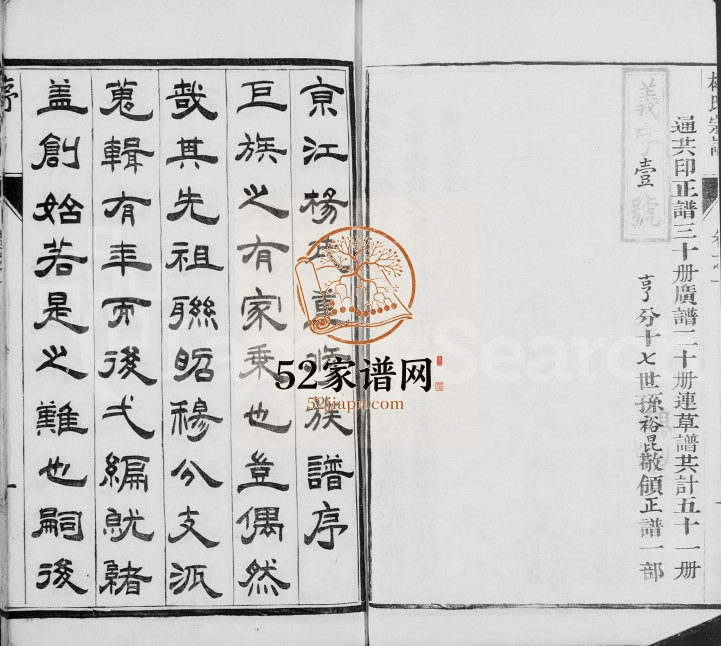 楊氏宗譜
通共印正譜三十册廣譜二十册連草譜共計五十一册
義字壹號
亨分十七世孫裕昆敬領正譜一部
京江楊氏重修族譜序
巨族之有家乗也豈偶然
哉其先祖聯昭穆分支派
蒐輯有年而後弌編就緒
盖創始若是之難也嗣後
序
52家谱网
52jiapu.com